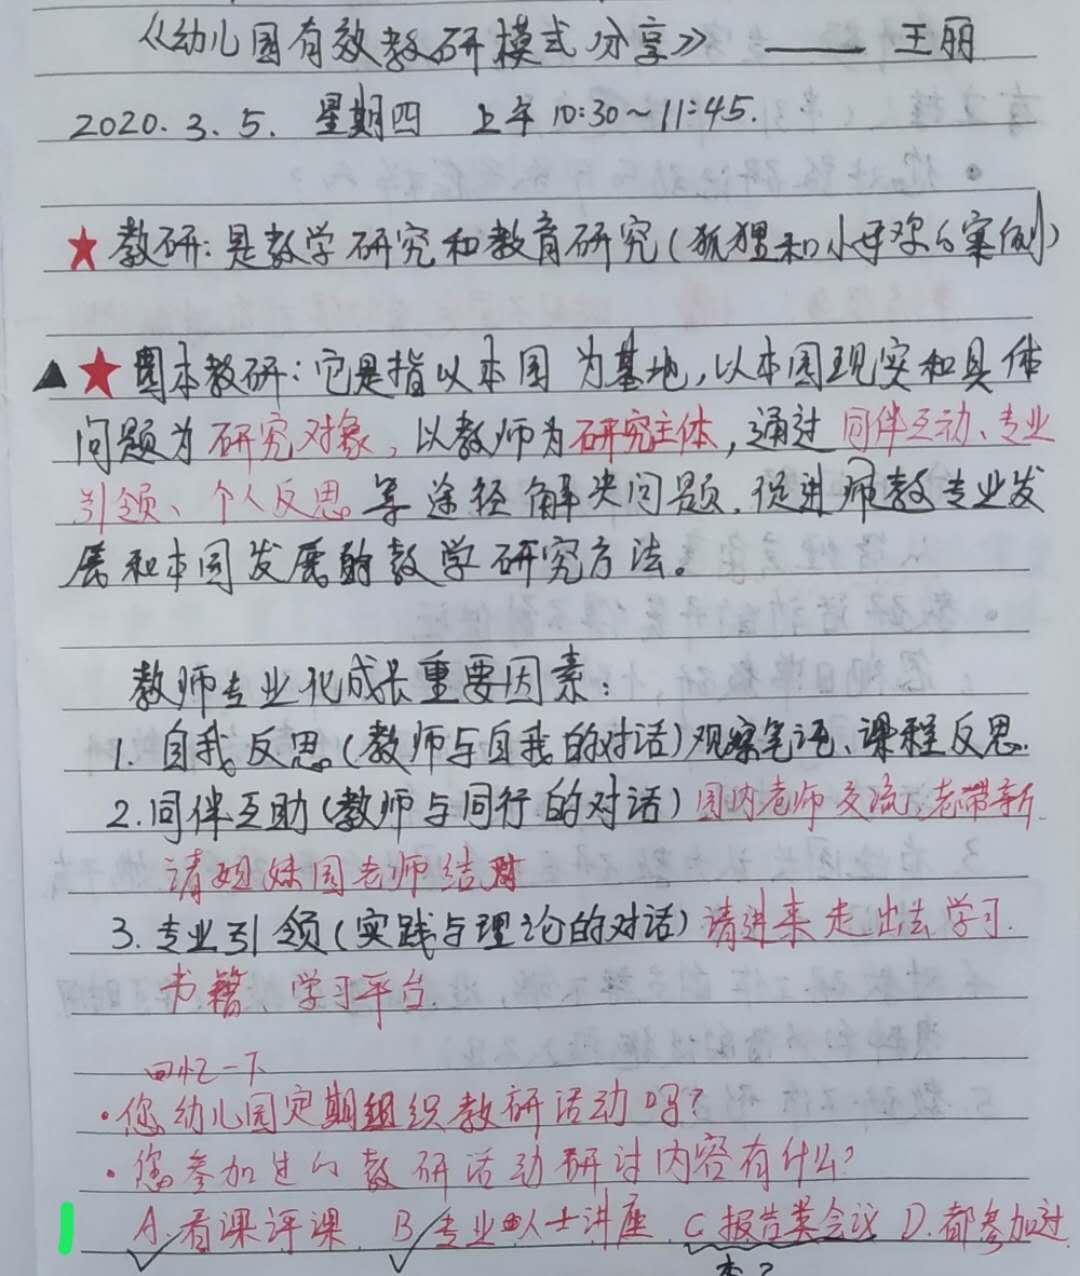 《幼儿园有效教研模式分享》 —— 王丽
2020.3.5. 星期四 上午10:30~11:45.
★教研:是教学研究和教育研究(狐狸和小母鸡的案例)
▲★园本教研:它是指以本园为基地,以本园现实和具体
问题为研究对象,以教师为研究主体,通过同伴互动、专业
引领、个人反思等途径解决问题,促进师教专业发
展和本园发展的教学研究方法。
教师专业化成长重要因素:
1.自我反思(教师与自我的对话)观察笔记、课程反思.
2.同伴互助(教师与同行的对话)园内老师交流,老带新.
请姐妹园老师结对
3.专业引领(实践与理论的对话)请进来 走出去 学习.
书籍、学习平台.
回忆一下
·您幼儿园定期组织教研活动吗?
·您参加过的教研活动研讨内容有什么?
A.看课评课. B.专业人士讲座 C报告类会议 D.都参加过.